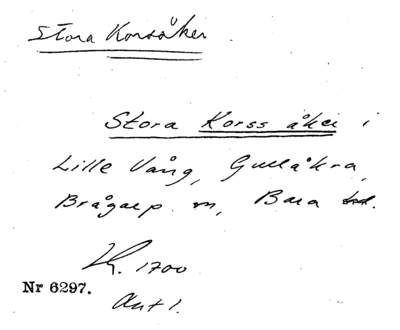 Stora Korsåker
Stora Korss åker i
Lille Vång, Gullåkra,
Brågarp. sn, Bara hd.
Lk. 1700
Nr 6297.
Ant 1.